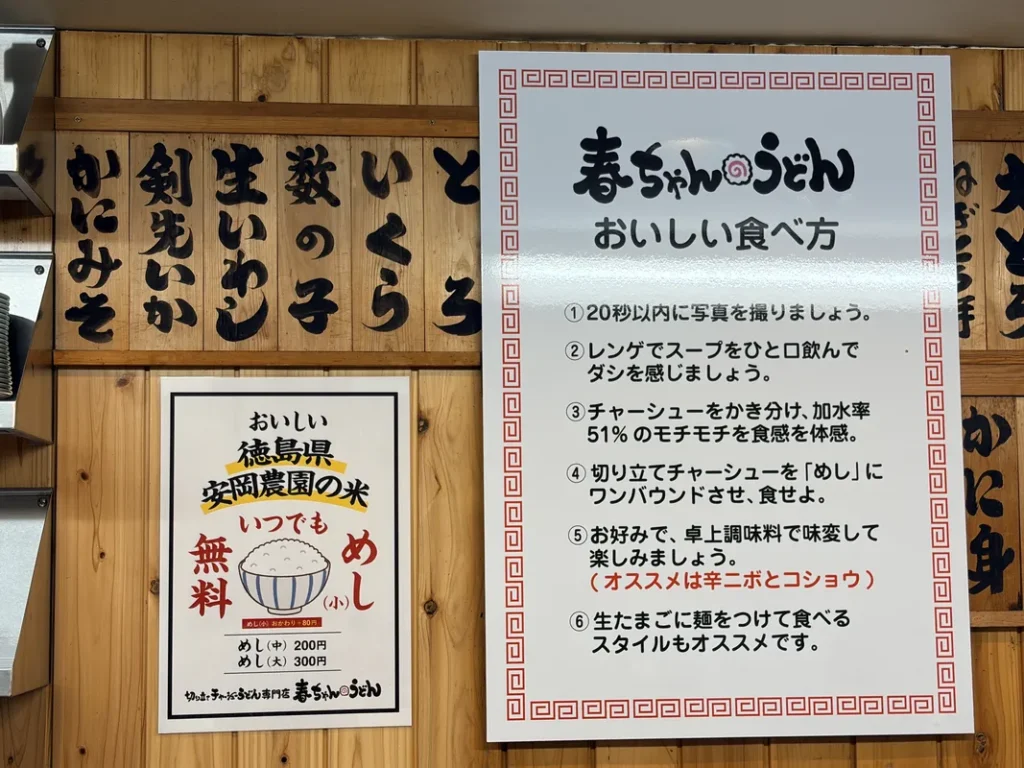 かにみそ
剣先いか
生いわし
数の子
いくら
とろ
春ちゃんうどん
おいしい食べ方
①20秒以内に写真を撮りましょう。
②レンゲでスープをひと口飲んで
ダシを感じましょう。
③チャーシューをかき分け、加水率
51%のモチモチを食感を体感。
④切り立てチャーシューを「めし」に
ワンバウンドさせ、食せよ。
⑤お好みで、卓上調味料で味変して
楽しみましょう。
(オススメは辛ニボとコショウ)
⑥生たまごに麺をつけて食べる
スタイルもオススメです。
おいしい
徳島県
安岡農園の米
いつでも
めし(小)
無料
めし(小)おかわり+80円
めし(中) 200円
めし(大) 300円
切り立てチャーシューうどん専門店 春ちゃんうどん
大とろ
かに身